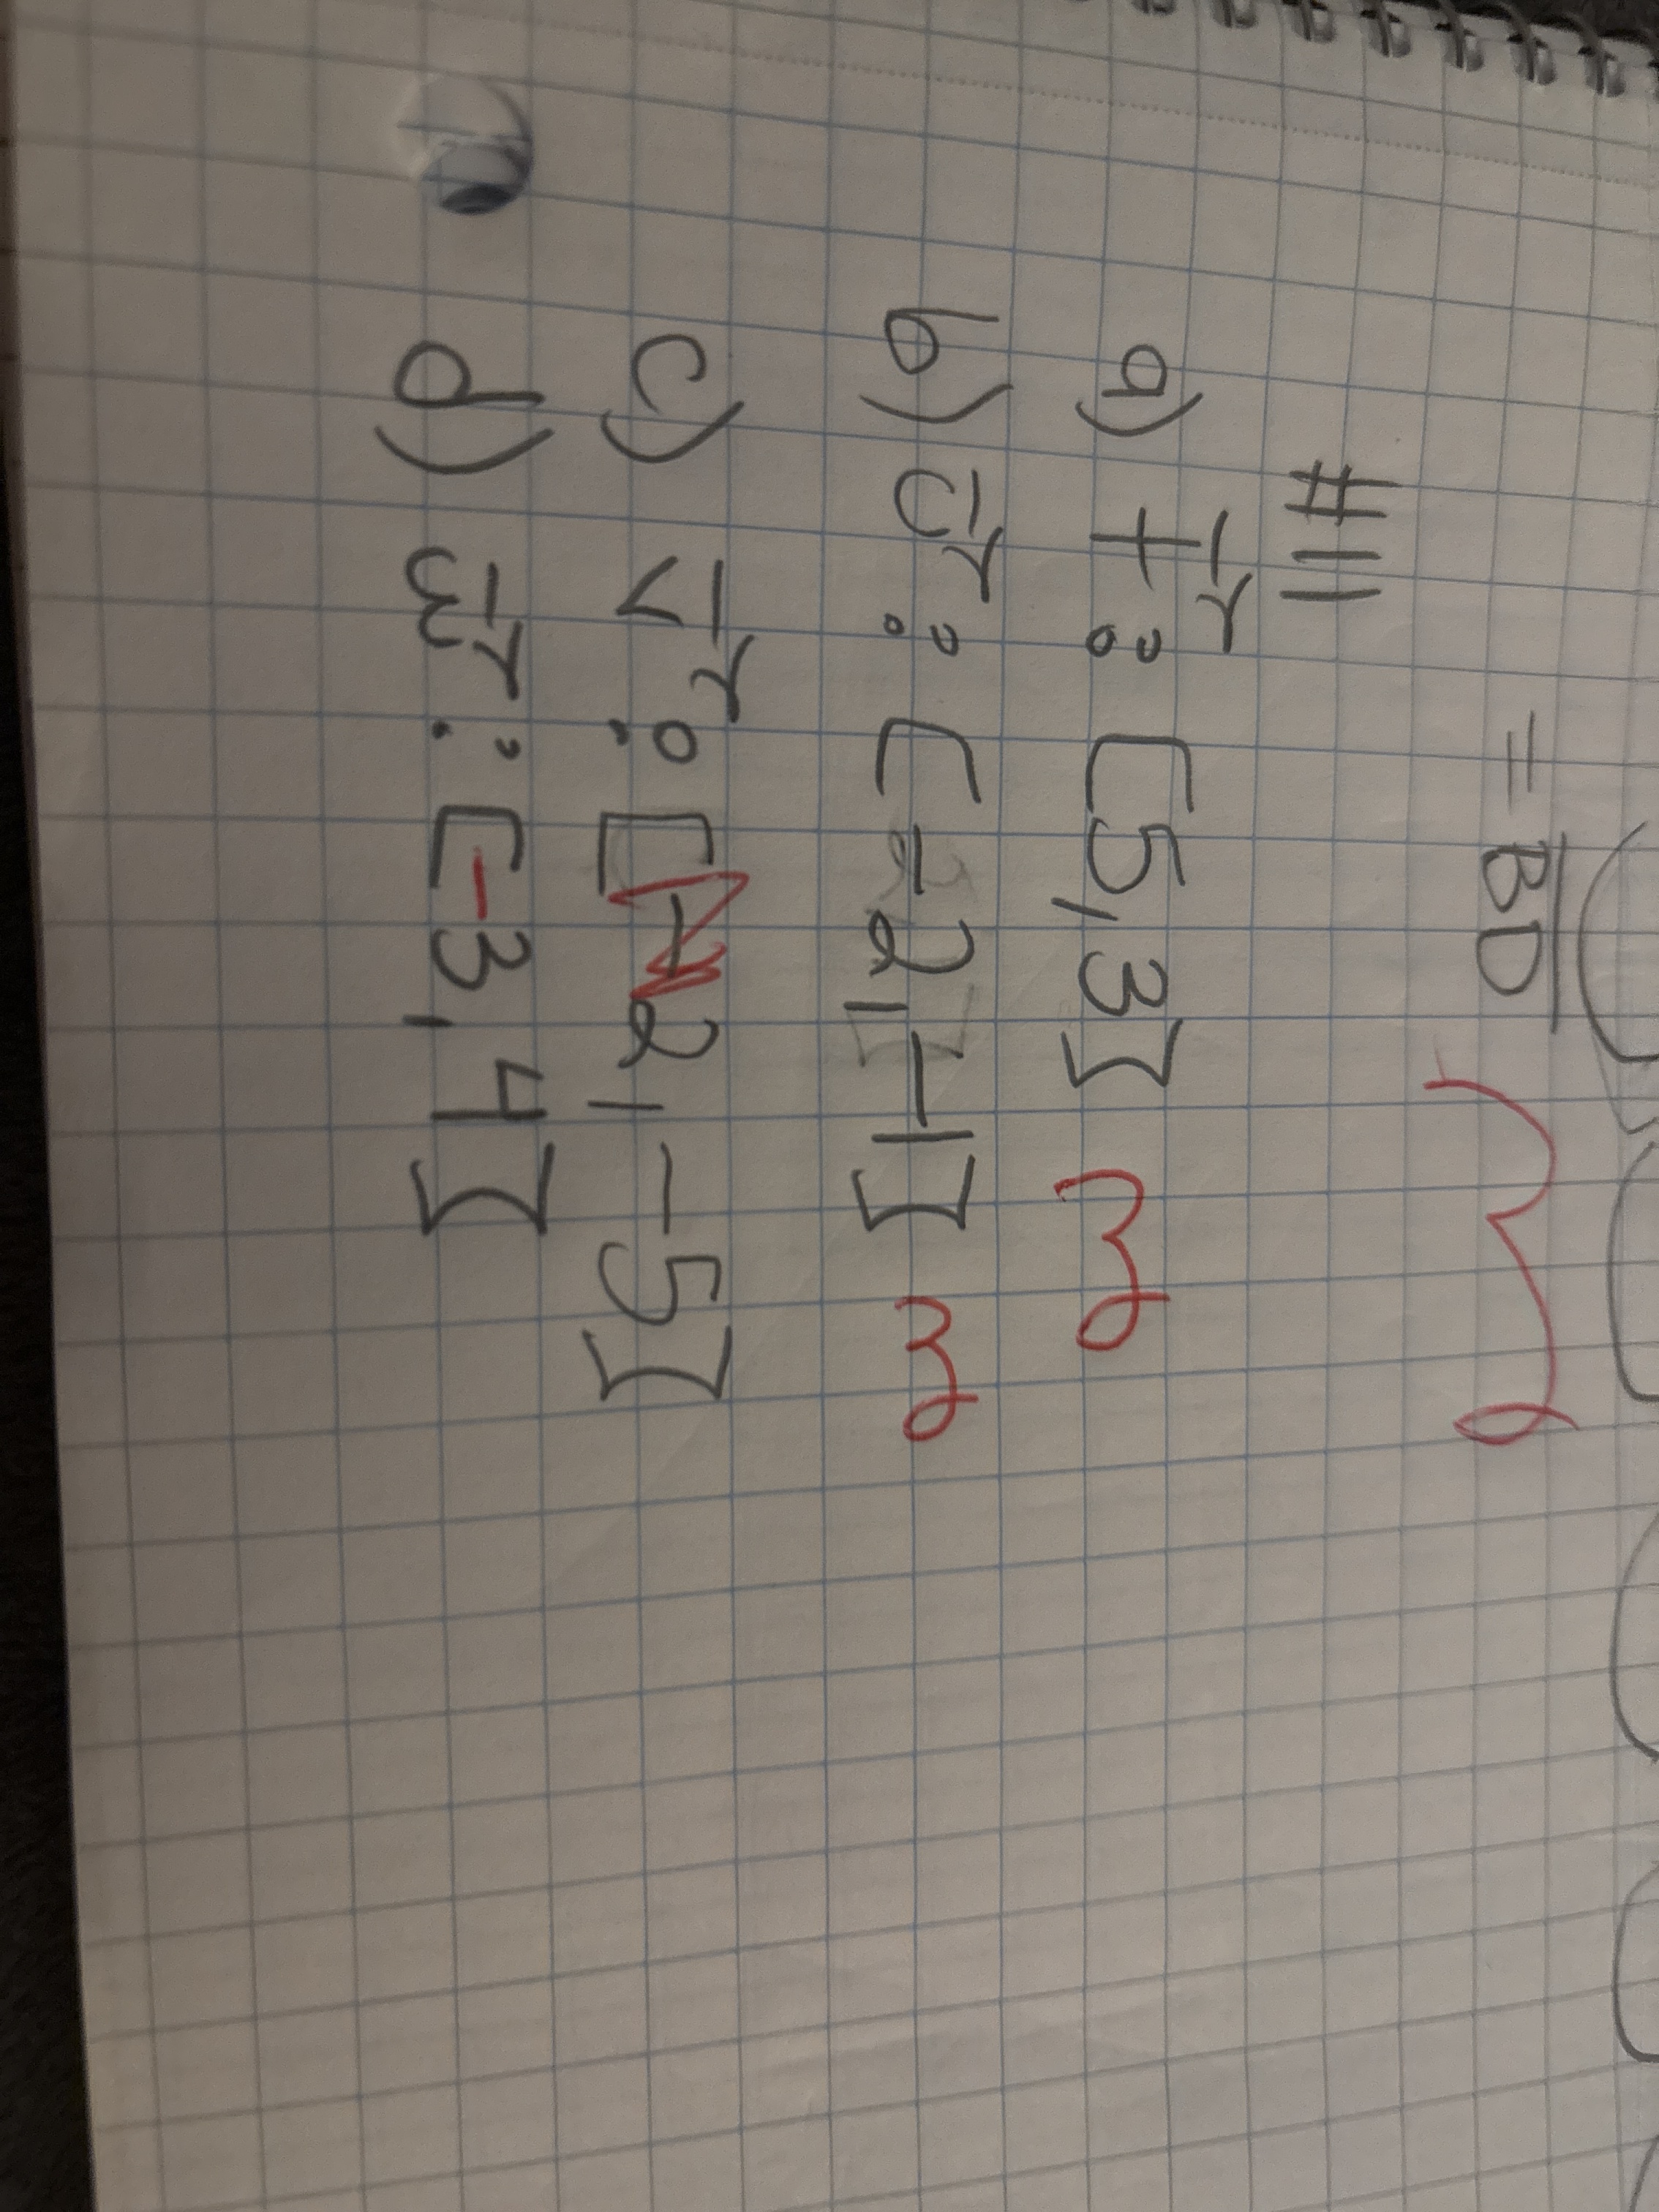 = BD
#11
a) t⃗: [5,3]
b) u⃗: [-2,-1]
c) v⃗: [2,-5]
d) w⃗: [-3,4]